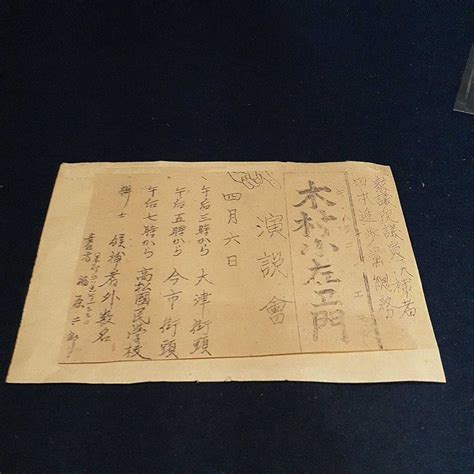 衆議院議員候補者
日本進歩党總務
木村小左ヱ門
演説會
四月六日
午后三時から 大津街頭
午后五時から 今市街頭
午后七時から 高松國民学校
辯士 候補者外数名